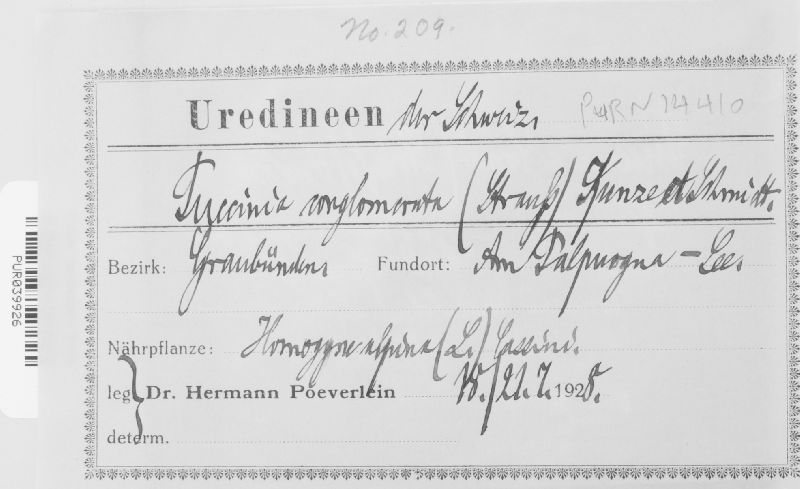 No. 209.
Uredineen der Schweiz. PURN 14410
Puccinia conglomerata (Strauß) Kunze et Schmidt.
Bezirk: Graubünden. Fundort: Am Palpuogna-See.
Nährpflanze: Homogyne alpina (L.) Cassini.
leg. Dr. Hermann Poeverlein 18./21.7.1928.
determ.
PUR039926